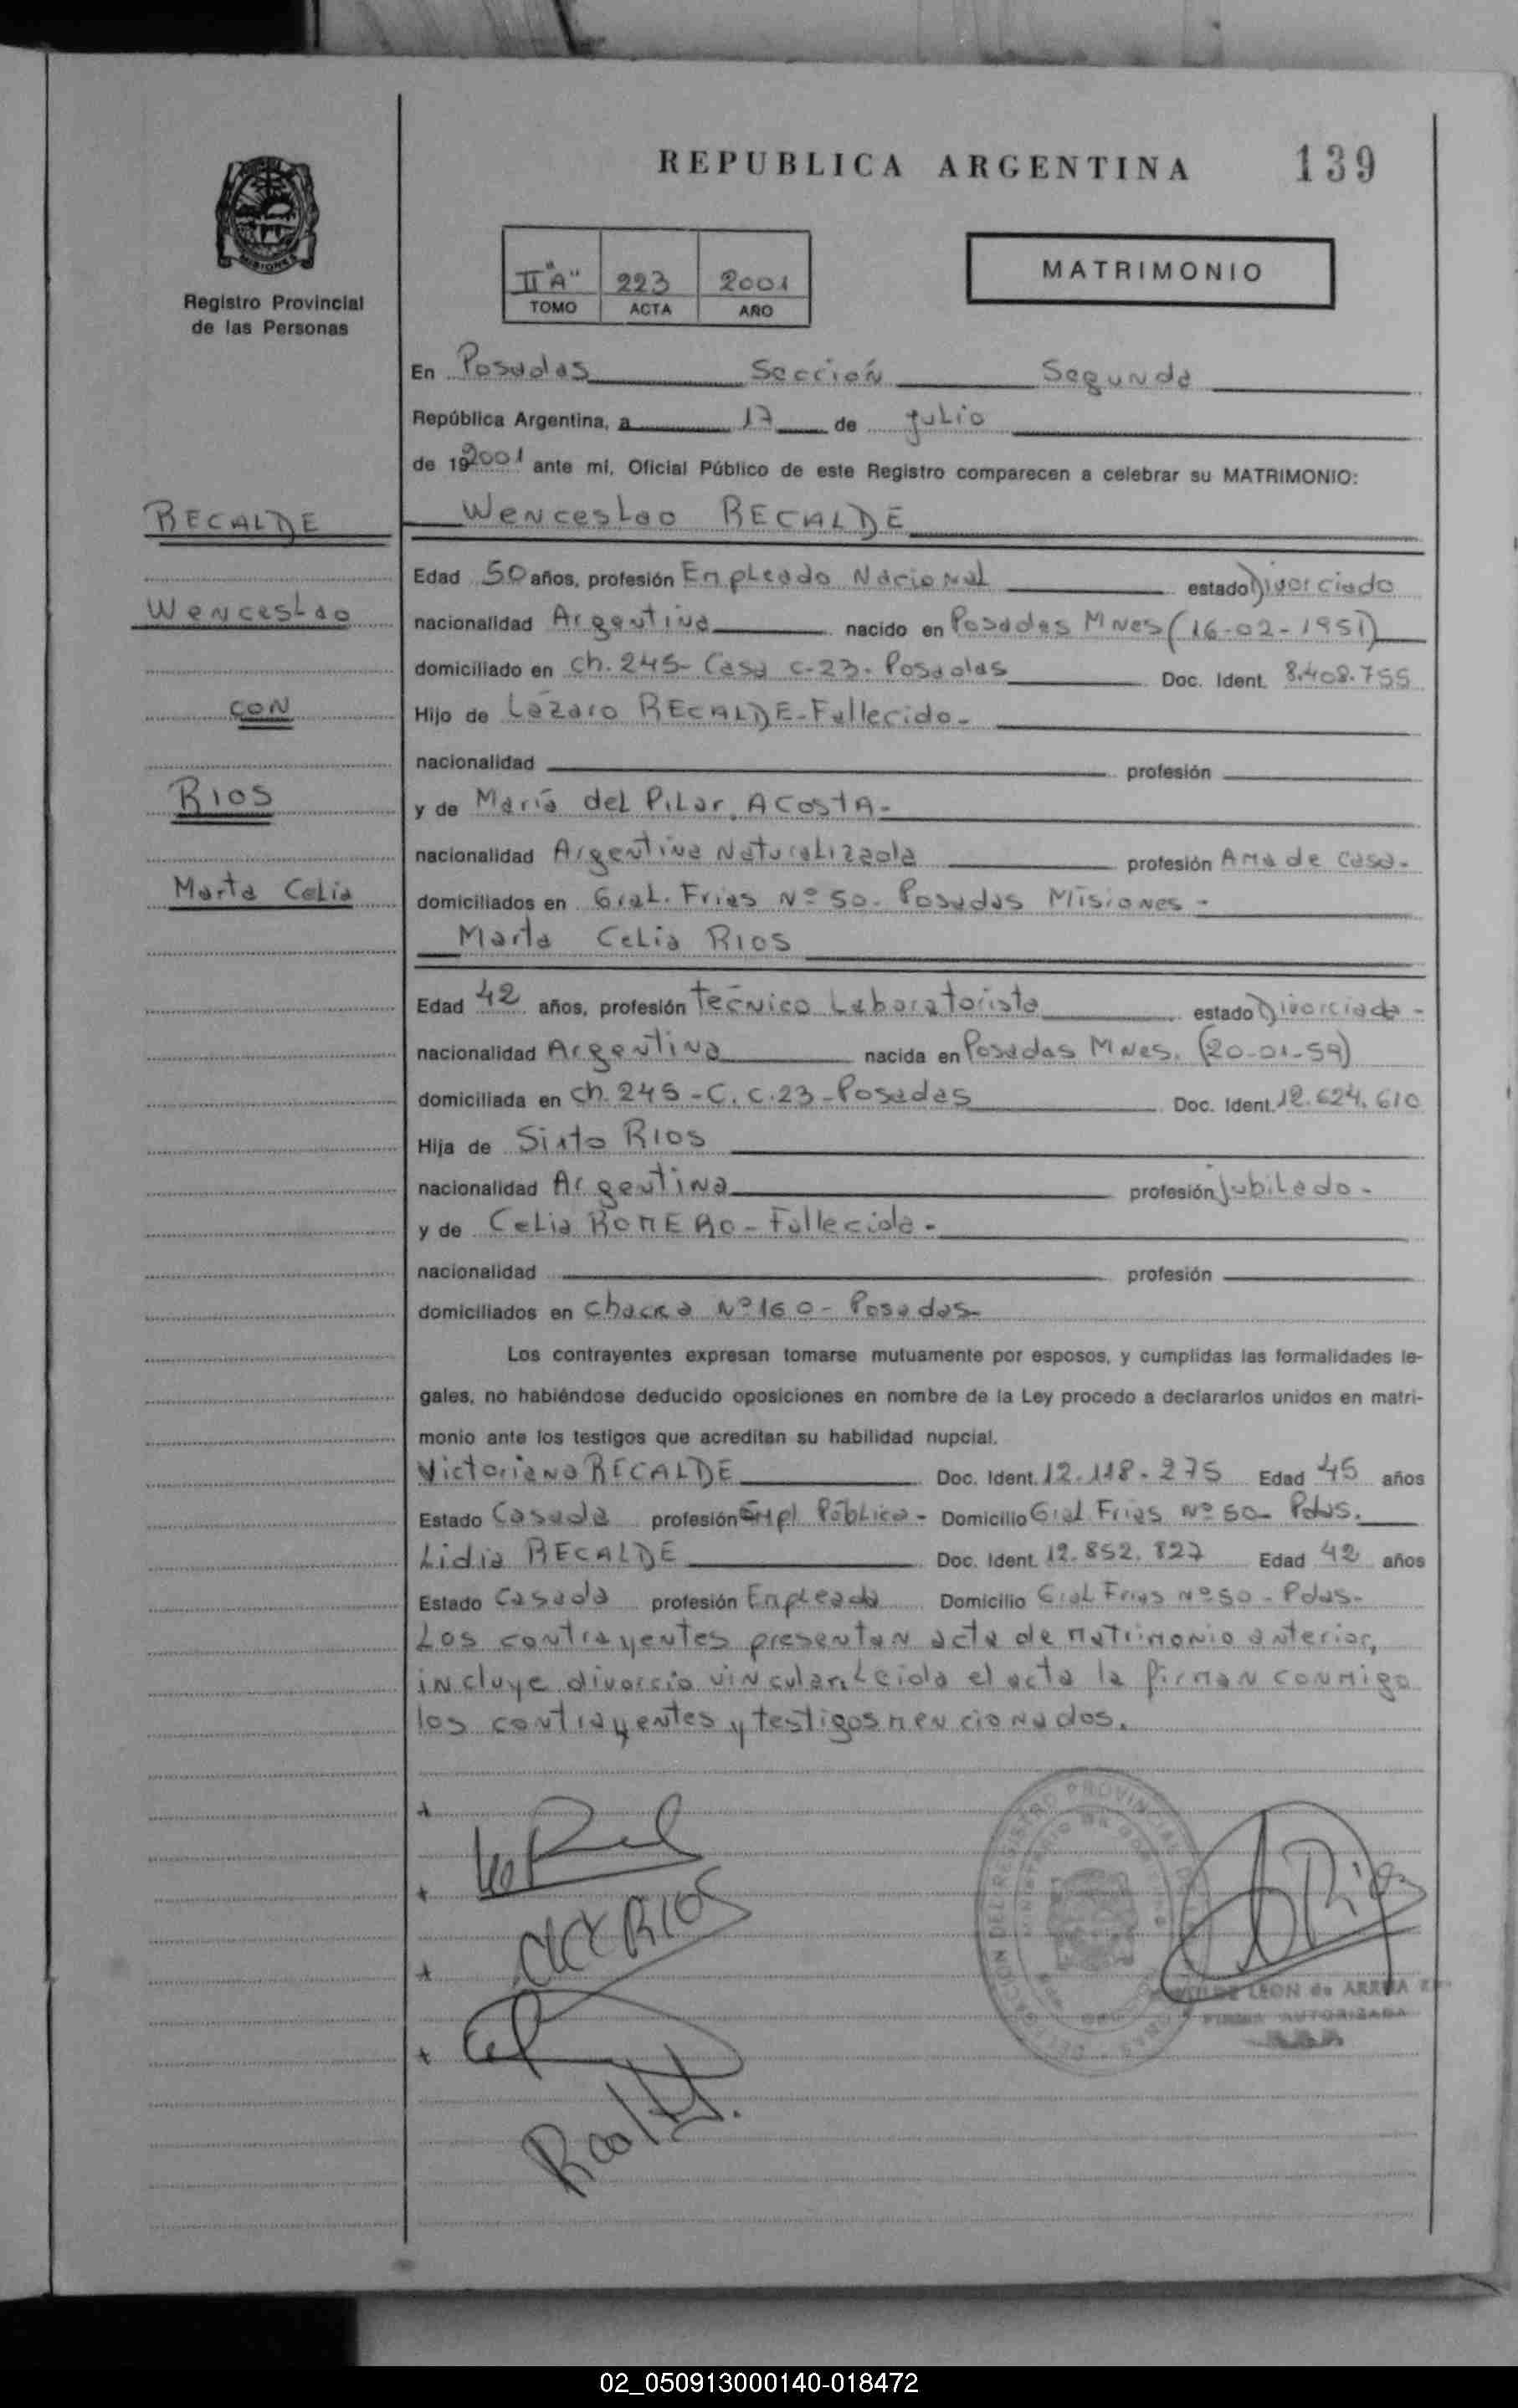 REPUBLICA ARGENTINA
139
MISIONES
Registro Provincial
de las Personas
II "A" 223 2001
TOMO ACTA AÑO
MATRIMONIO
En Posadas Sección Segunda
República Argentina, a 17 de Julio
de 192001 ante mí, Oficial Público de este Registro comparecen a celebrar su MATRIMONIO:
RECALDE
Wenceslao
CON
RIOS
Marta Celia
Wenceslao RECALDE
Edad 50 años, profesión Empleado Nacional estado Divorciado
nacionalidad Argentina nacido en Posadas Mnes (16-02-1951)
domiciliado en Ch. 245- Casa C-23- Posadas Doc. Ident. 8.408.755
Hijo de Lázaro RECALDE-Fallecido-
nacionalidad profesión
y de María del Pilar ACOSTA-
nacionalidad Argentina Naturalizada profesión Ama de Casa-
domiciliados en Gral. Frias Nº 50- Posadas Misiones-
Marta Celia RIOS
Edad 42 años, profesión Técnico Laboratorista estado Divorciada-
nacionalidad Argentina nacida en Posadas Mnes. (20-01-59)
domiciliada en Ch. 245-C. C.23-Posadas Doc. Ident. 12.624.610
Hija de Sixto RIOS
nacionalidad Argentina profesión Jubilado-
y de Celia ROMERO-Fallecida-
nacionalidad profesión
domiciliados en Chacra Nº 160- Posadas-
Los contrayentes expresan tomarse mutuamente por esposos, y cumplidas las formalidades le-
gales, no habiéndose deducido oposiciones en nombre de la Ley procedo a declararlos unidos en matri-
monio ante los testigos que acreditan su habilidad nupcial.
Victoriano RECALDE Doc. Ident. 12.118.275 Edad 45 años
Estado Casado profesión Empl Público- Domicilio Gral Frias Nº 50- Pdas.
Lidia RECALDE Doc. Ident. 12.852.827 Edad 42 años
Estado Casada profesión Empleada Domicilio Gral Frias Nº 50- Pdas-
Los contrayentes presentan acta de matrimonio anterior,
incluye divorcio vincular. Leida el acta la firman conmigo
los contrayentes y testigos mencionados.
RIOS
LEON de ARRUA
FIRMA AUTORIZADA
02_050913000140-018472